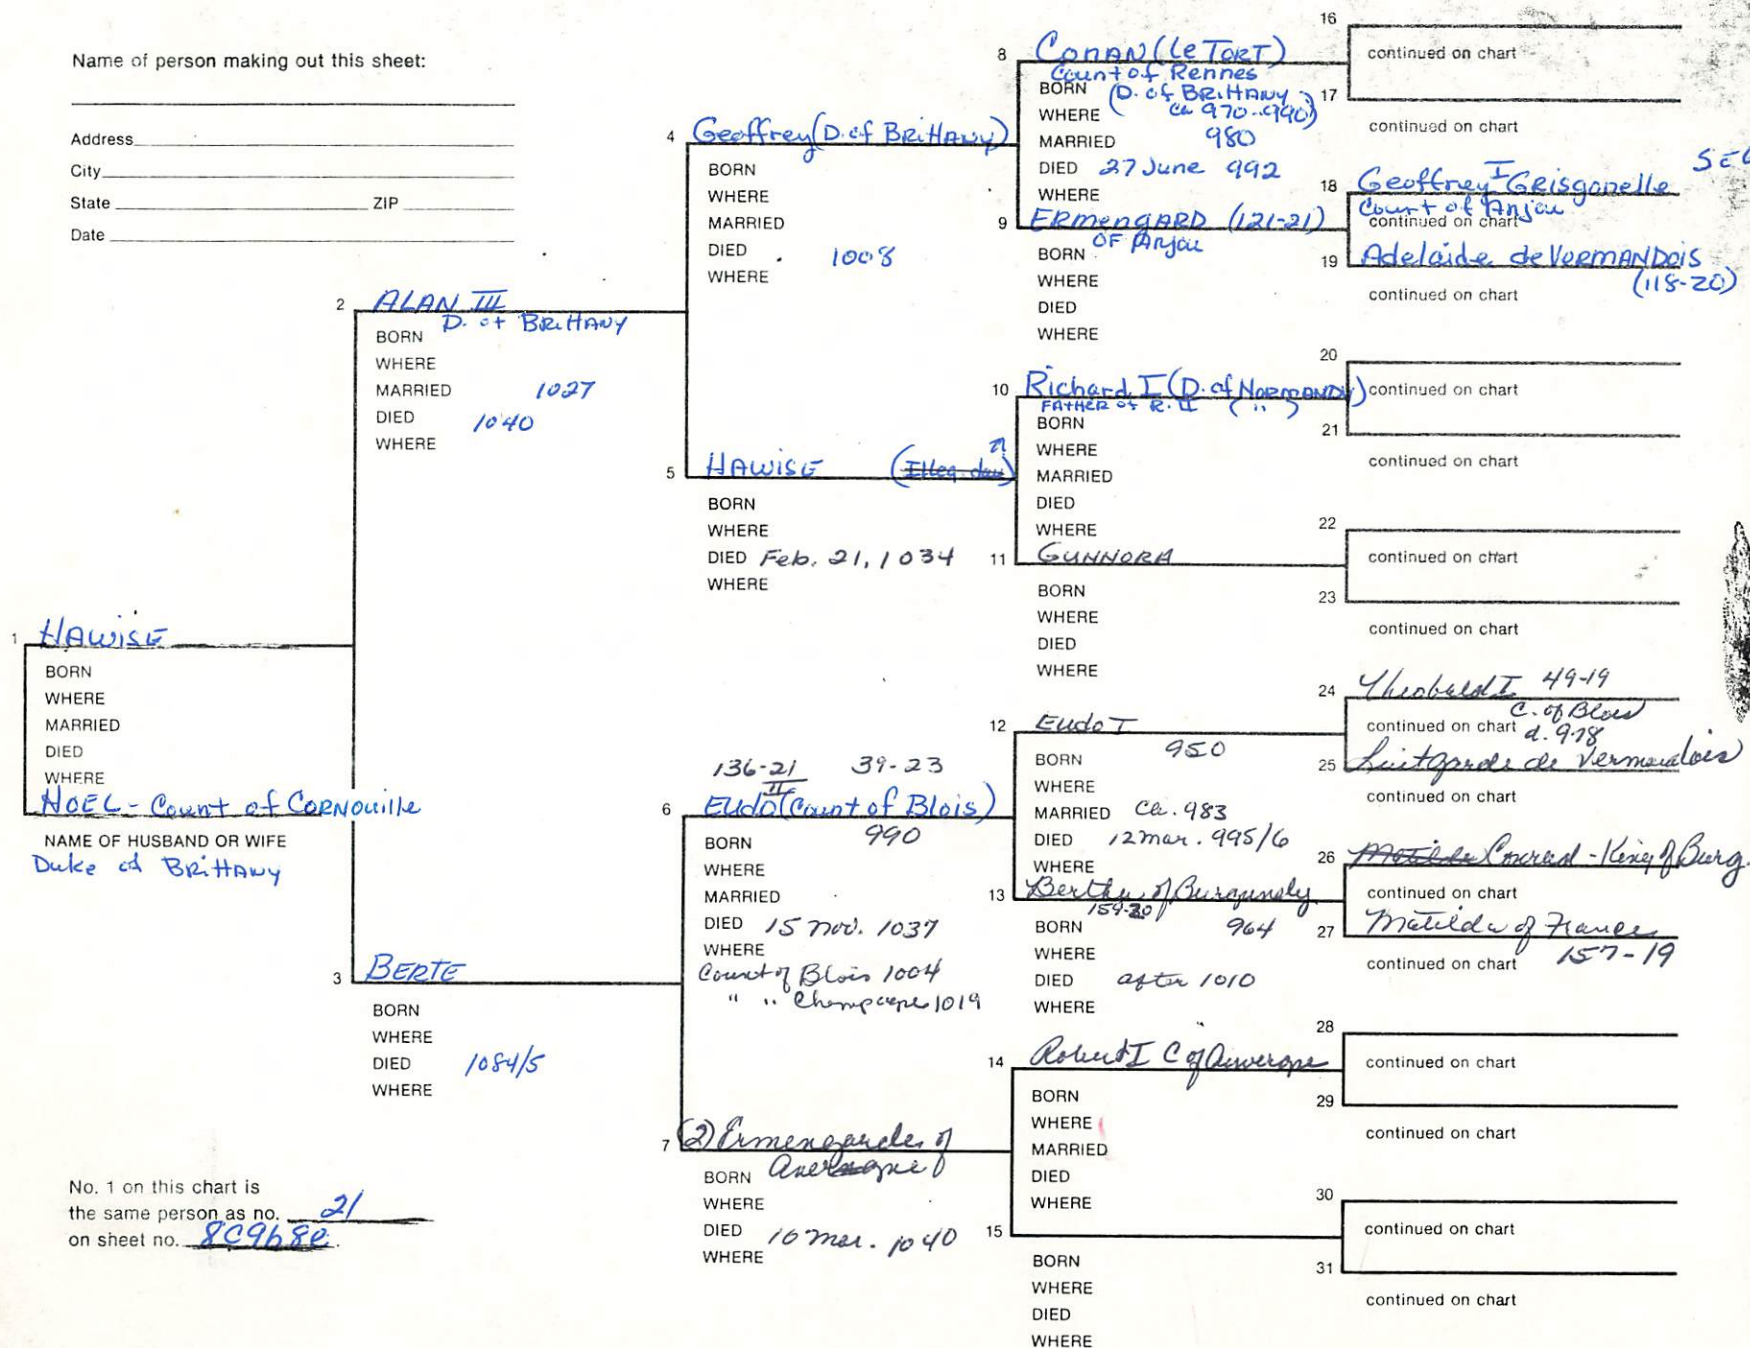 Name of person making out this sheet:
Address
City
State ZIP
Date
1 HAWISE
BORN
WHERE
MARRIED
DIED
WHERE
NOEL - Count of CORNOUILLE
NAME OF HUSBAND OR WIFE
Duke of BRITTANY
No. 1 on this chart is
the same person as no. 21
on sheet no. 8C9b8e.
2 ALAN III
D. of BRITTANY
BORN
WHERE
MARRIED 1027
DIED 1040
WHERE
3 BERTE
BORN
WHERE
DIED 1084/5
WHERE
4 Geoffrey (D. of BRITTANY)
BORN
WHERE
MARRIED
DIED 1008
WHERE
5 HAWISE (Illeg. dau)
BORN
WHERE
DIED Feb. 21, 1034
WHERE
136-21 39-23
II
6 EUDO (Count of Blois)
BORN 990
WHERE
MARRIED
DIED 15 Nov. 1037
WHERE
Count of Blois 1004
" " Champagne 1019
7 (2) Ermengardes of
BORN
WHERE
DIED 10 Mar. 1040
WHERE
8 CONAN (Le TORT)
Count of Rennes
BORN (D. of BRITTANY
WHERE ca 970-990)
MARRIED 980
DIED 27 June 992
WHERE
9 ERMENGARD (121-21)
OF Anjou
BORN
WHERE
DIED
WHERE
10 Richard I (D. of NORMANDY)
FATHER of R. II ( " )
BORN
WHERE
MARRIED
DIED
WHERE
11 GUNNORA
BORN
WHERE
DIED
WHERE
12 EUDO I
BORN 950
WHERE
MARRIED Ca. 983
DIED 12 Mar. 995/6
WHERE
13 Bertha of Burgundy
159-20
BORN 964
WHERE
DIED after 1010
WHERE
14 Robert I C of Auvergne
BORN
WHERE
MARRIED
DIED
WHERE
15
BORN
WHERE
DIED
WHERE
16
continued on chart
17
continued on chart
18 Geoffrey I Grisgonelle
Count of Anjou
continued on chart
19 Adelaide de VERMANDOIS
(118-20)
continued on chart
20
continued on chart
21
continued on chart
22
continued on chart
23
continued on chart
24 Theobald I 49-19
C. of Blois
continued on chart d. 978
25 Luitgarde de Vermandois
continued on chart
26 Matilda Conrad - King of Burg.
continued on chart
27 Matilda of France
continued on chart 157-19
28
continued on chart
29
continued on chart
30
continued on chart
31
continued on chart